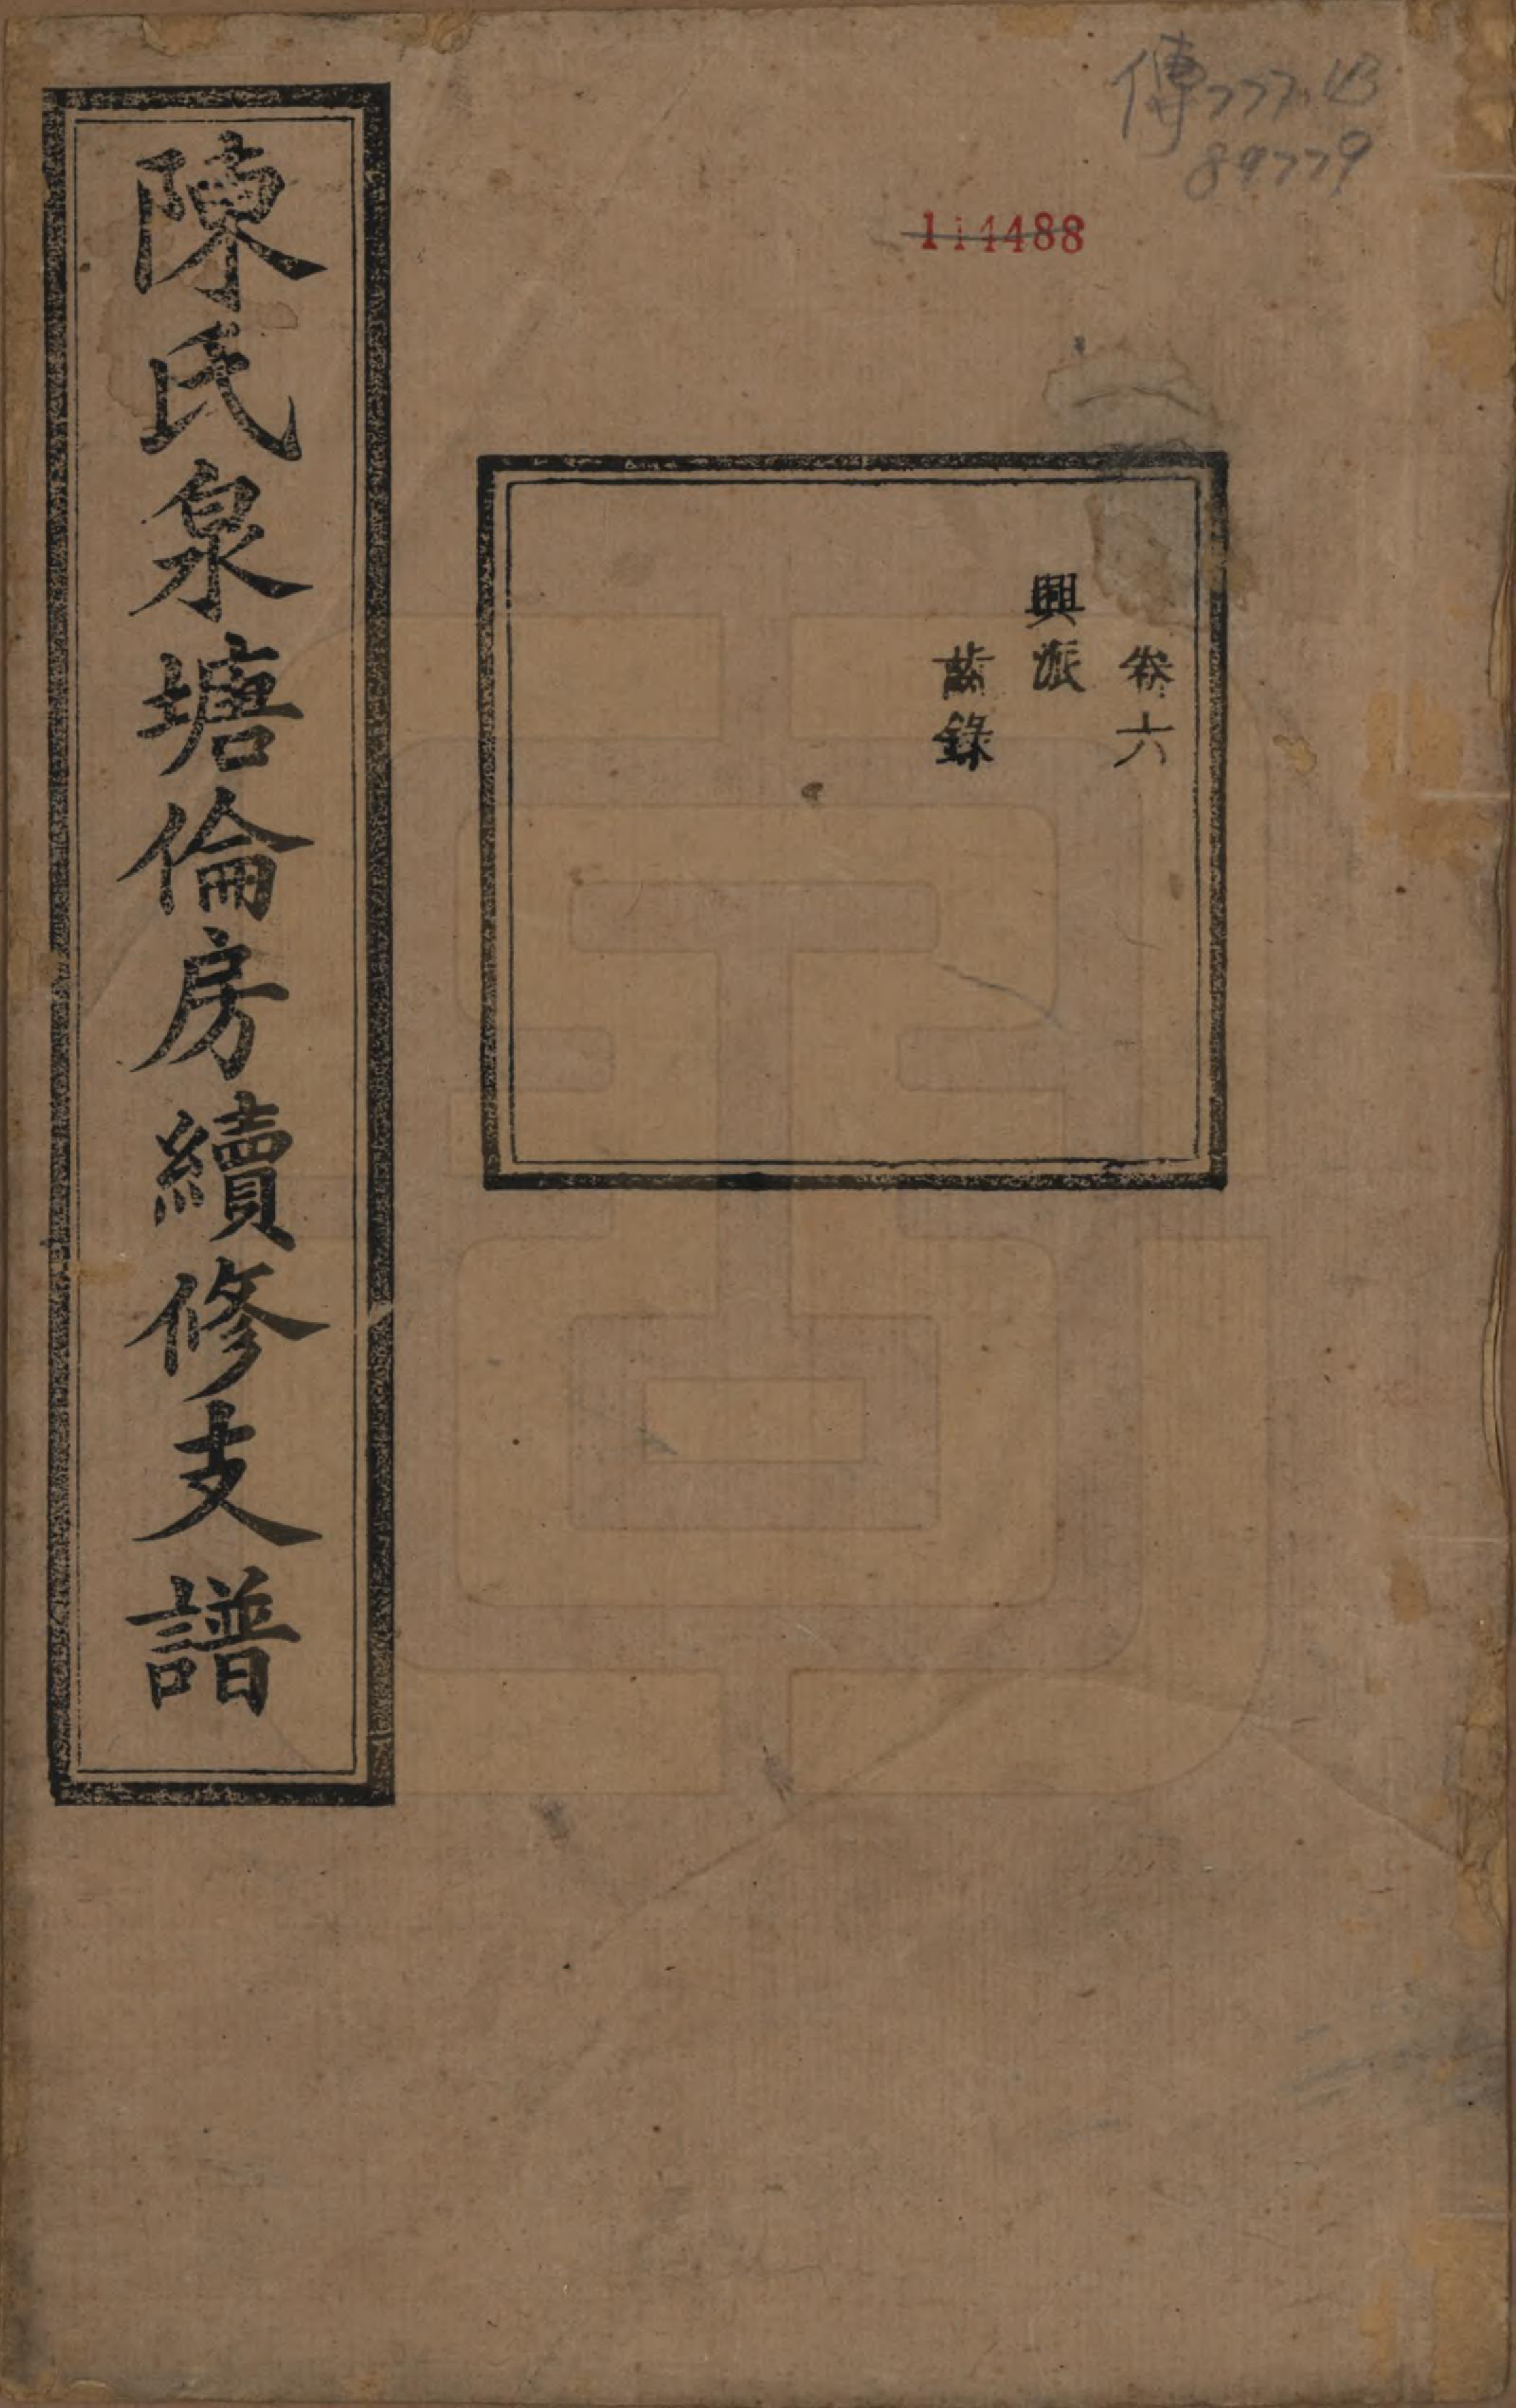 傳777.43
89779
114488
卷六
興派
齒錄
陳氏泉塘倫房續修支譜